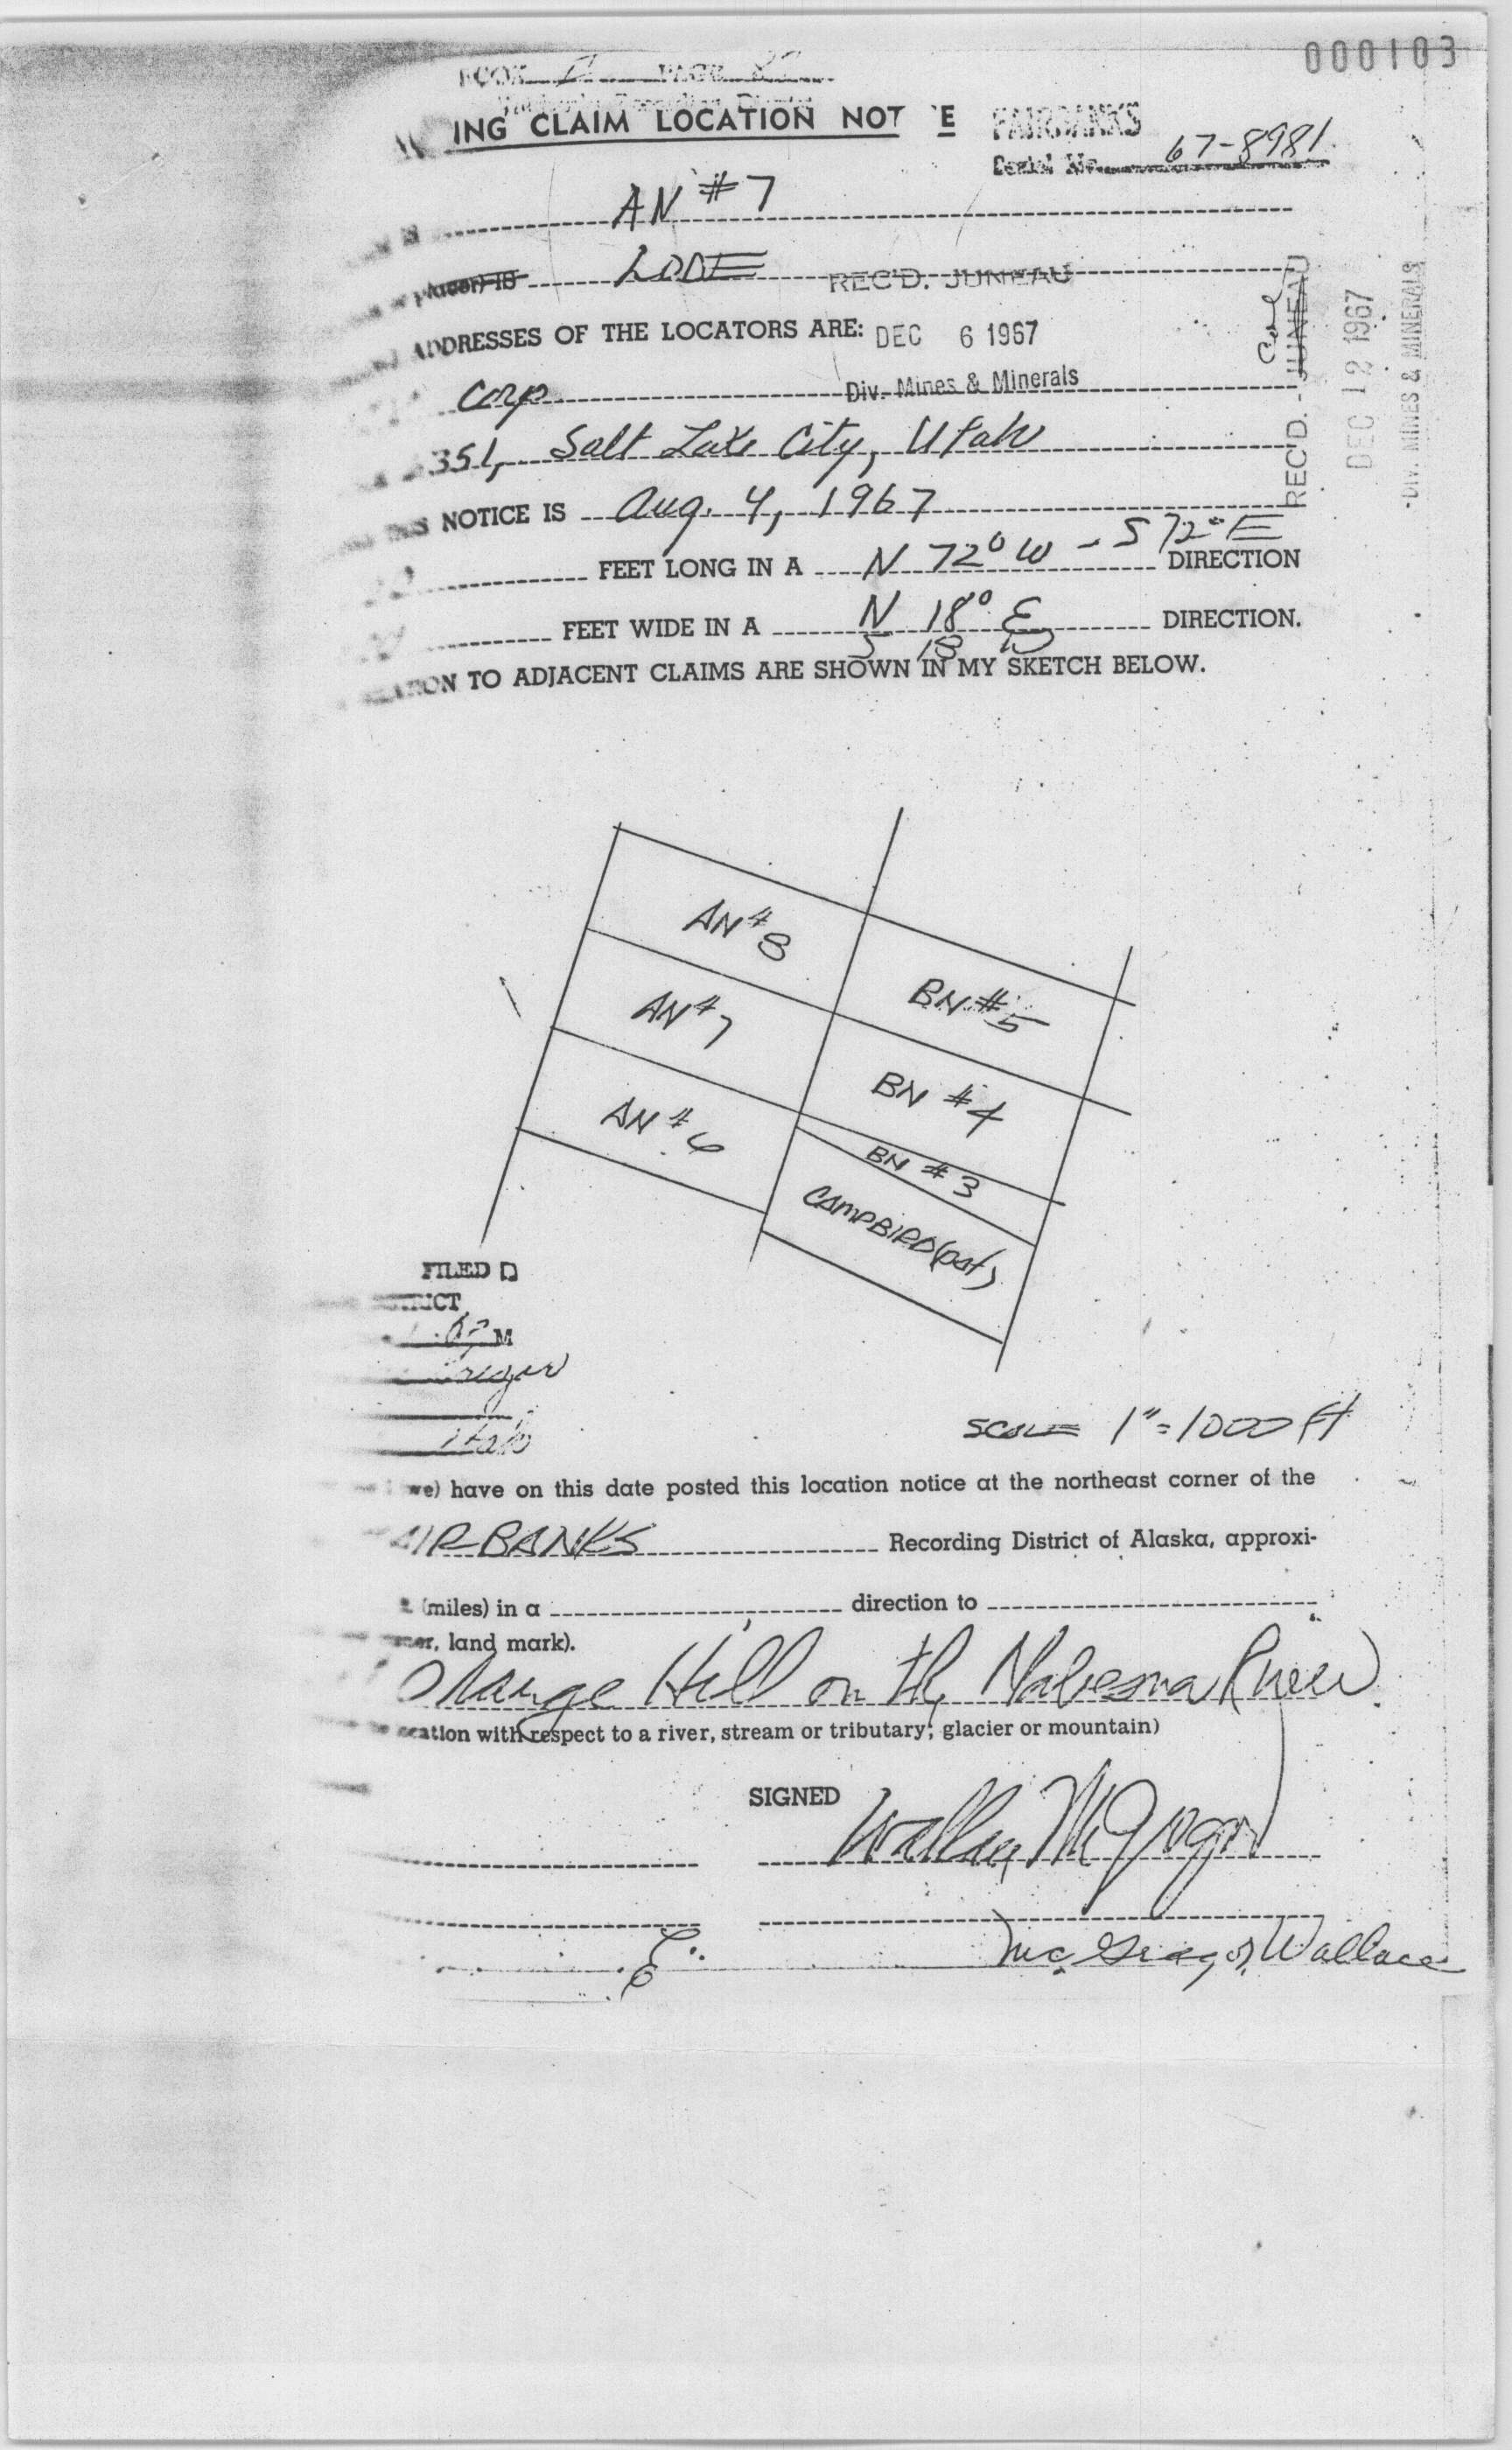 000103
PAGE
ING CLAIM LOCATION NOT E
FAIRBANKS
Serial No. 67-8981
AN #7
LODE
REC'D. JUNEAU
ADDRESSES OF THE LOCATORS ARE:
DEC 6 1967
Corp
Div. Mines & Minerals
351, Salt Lake City, Utah
THIS NOTICE IS Aug. 4, 1967
FEET LONG IN A N 72° W - S 72° E DIRECTION
FEET WIDE IN A N 18° E DIRECTION.
S 18 W
TO ADJACENT CLAIMS ARE SHOWN IN MY SKETCH BELOW.
REC'D. - JUNEAU
DEC 12 1967
DIV. MINES & MINERALS
AN #8
BN #5
AN #7
BN #4
AN #6
BN #3
CAMPBIRD (pat)
FILED
M
SCALE 1" = 1000 Ft
we) have on this date posted this location notice at the northeast corner of the
AIRBANKS Recording District of Alaska, approxi-
(miles) in a direction to
land mark).
Orange Hill on the Nabesna River
cation with respect to a river, stream or tributary; glacier or mountain)
SIGNED Wallace McGregor
McGregor, Wallace